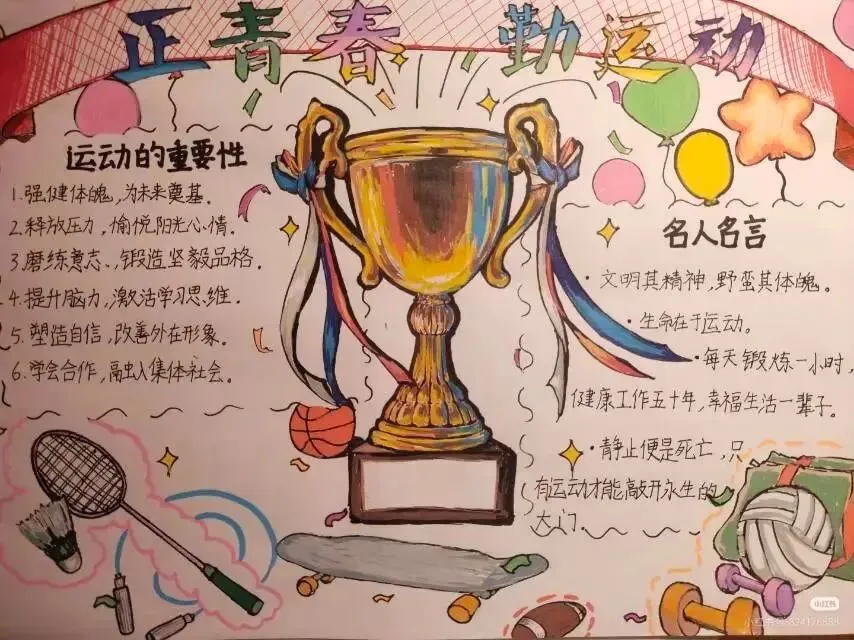 正青春 勤运动
运动的重要性
1.强健体魄,为未来奠基.
2.释放压力,愉悦阳光心情.
3.磨练意志、锻造坚毅品格.
4.提升脑力,激活学习思维.
5.塑造自信,改善外在形象.
6.学会合作,融入集体社会.
名人名言
·文明其精神,野蛮其体魄。
·生命在于运动。
·每天锻炼一小时,
健康工作五十年,幸福生活一辈子.
·静止便是死亡,只
有运动才能敲开永生的
大门.
小红书